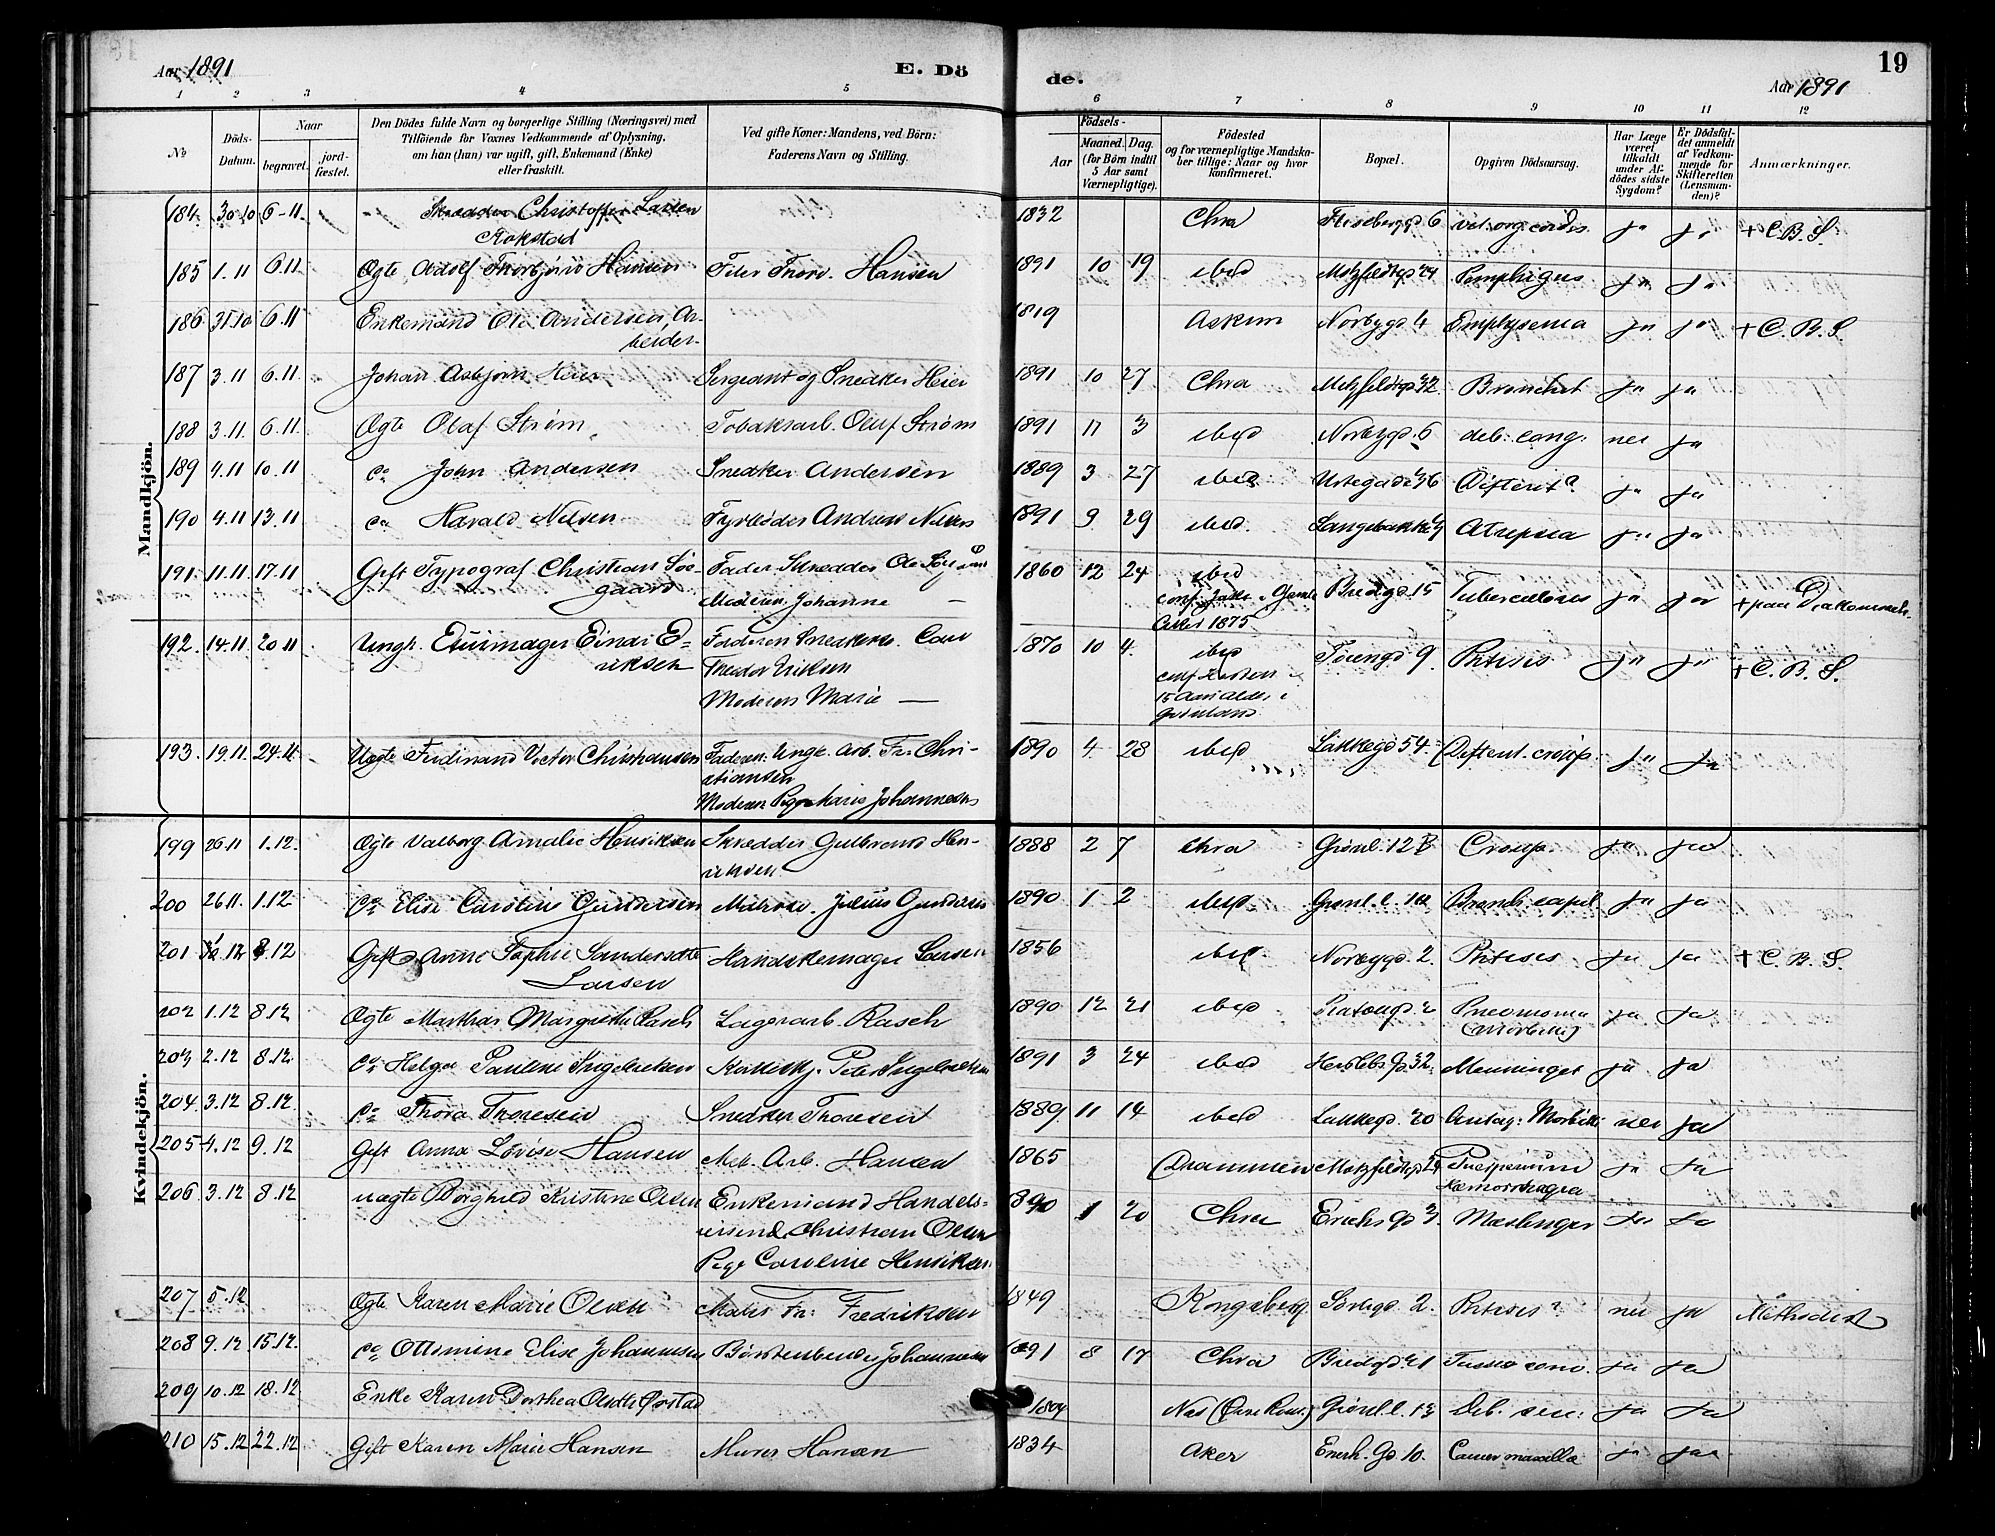 Aar 1891
E. Dö
de.
Aar 1891
19
1 2 3 4 5 6 7 8 9 10 11 12
No
Döds-
Datum.
Naar
begravet.
jord-
fæstet.
Den Dödes fulde Navn og borgerlige Stilling (Næringsvei) med
Tilföiende for Voxnes Vedkommende af Oplysning,
om han (hun) var ugift, gift, Enkemand (Enke)
eller fraskilt.
Ved gifte Koner: Mandens, ved Börn:
Faderens Navn og Stilling.
Födsels-
Aar
Maaned. Dag.
(for Börn indtil
5 Aar samt
Værnepligtige).
Födested
og for værnepligtige Mandska-
ber tillige: Naar og hvor
konfirmeret.
Bopæl.
Opgiven Dödsaarsag.
Har Læge
været
tilkaldt
under Af-
dödes sidste
Sygdom?
Er Dödsfal-
det anmeldt
af Vedkom-
mende for
Skifteretten
(Lensman-
den)?
Anmærkninger.
Mandkjön.
184. 30.10 6-11 Skrædder Christoffer Larsen 1832 Chra 6 vit. org. cordis. ja ja + C. B. S.
Rokstad
185 1.11 6.11 Ægte Adolf Thorbjørn Hansen Hansen 1891 10 19 ibid Motzfeldtgd 24 Pemphigus ja ja
186 31.10 6.11 Enkemand Ole Andersen, Ar- 1819 Askim Norbygd 4 Emphysema ja ja + C. B. S.
beider
187 3.11 6.11. Johan Asbjørn Heier Sergeant og Snedker Heier 1891 10 27 Chra Motzfeldtgd 32 Bronchit ja ja
188 3.11. 6.11. Ægte Olaf Strøm Tobaksarb. Oluf Strøm 1891 11 3 ibid Norbygd. 6 deb. cong. nei ja
189 4.11 10.11 do John Andersen Snedker Andersen 1889 3 27 ibid Urtegade 36 Difterit ja ja
190 4.11 13.11 do Harald Nilsen Fyrbøder Andreas Nilsen 1891 9 29 ibid. Langebakke 9 Atrepsia ja ja
191. 11.11. 17.11 Gift Typograf Christian Søe- Fader Skrædder Ole 1860 12 24 ibid Bredgd 15 Tuberculosis ja ja
gaard Moderen Johanne — conf. Gamle
Aker 1875
192. 14.11. 20.11 Ungk. Etuimager Einar E- Faderen Snedkersv. Carl 1870 10 4. ibid 9 Phtisis ja ja + C. B. S.
riksen Theodor Eriksen
Moderen Marie — 15 Aars Alder i
Grønland
193. 19.11. 24.11. Uægte Ferdinand Victor Christiansen Faderen: Ungk. Arb. Fr. Chri- 1890 4 28 ibid Lakkegd 54. Difterit. croup. ja ja
stiansen
Moderen Pige Marie Johannesen
Kvindekjön.
199 26.11 1.12. Ægte Valborg Amalie Henriksen Skrædder Gulbrand Hen- 1888 2 7 Chra Grønl. 12 B Croup. ja ja
riksen
200 26.11. 1.12 do Elise Caroline Gundersen Julius Gundersen 1890 1 2 ibid Grønl. l. Bronch. capil. ja ja
201 8.12 Gift Anne Sophie Handskemager Larsen 1856 ibid. Norbygd. 2. Phtisis ja ja + C. B. S.
Larsen
202 1.12 8.12 Ægte Marthas Margrethe Rasch Lagerarb. Rasch 1890 12 21 ibid Pneumonia ja ja
(Morbilli)
203 2.12 8.12. do Helga Pauline Ingebretsen Peter Ingebretsen 1891 3 24 ibid Herslebs Gd 32. Meninngit ja ja
204. 3.12 8.12. do Thora Thoresen Snedker Thoresen 1889. 11 14 ibid Lakkegd. 20 Antag: Morbilli nei ja
205 4.12 9.12 Gift Anna Lovise Hansen Mek. Arb. Hansen 1865 Drammen Motzfeldtgd 24 Puerperium ja ja
Hæmorrhagia
206. 3.12 8.12. uægte Borghild Kristine Olsen Enkemand Handels- 1890 1 20 Chra Enerh. Gd 3. Mæslinger ja ja
reisend. Christian Olsen
Pige Caroline Henriksen
207 5.12 Ægte Karen Marie Olsen Maler Fr. Fredriksen 1849 Kongsberg. Sørligd. 2. Phtisis? nei ja Methodist
208 9.12 15.12. do Ottomine Elise Johannesen Børstenbinder Johannesen 1891 8 17 Chra Bredgd. 21 Tussis conv. ja ja
209 10.12 18.12 Enke Karen Dorthea 1804 Nes (Øvre Rom.) Grønl. l. 13 Deb. sen. ja ja
210 15.12 22.12 Gift Karen Marie Hansen Murer Hansen 1834 Aker Enerh. Gd. 10. Cancer maxillæ ja ja